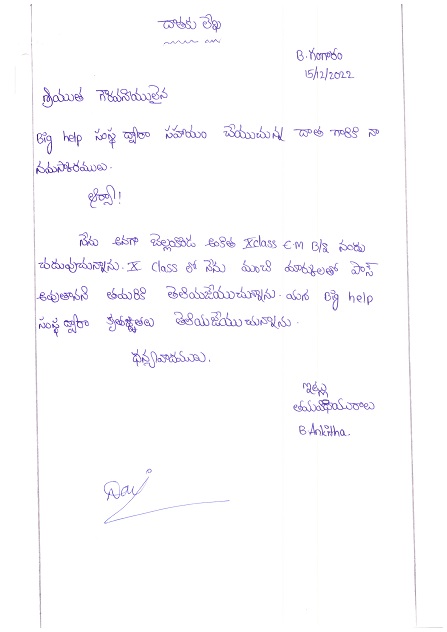 దాతకు లేఖ
B. గంగారం
15/12/2022
శ్రీయుత గౌరవనీయులైన
Big help సంస్థ ద్వారా సహాయం చేయుచున్న దాత గారికి నా
నమస్కారములు.
నేను అనగా బెల్లంకొండ అంకిత Xclass E-M నందు
చదువుచున్నాను. X Class లో నేను మంచి మార్కులతో పాస్
అవుతానని తమరికి తెలియజేయుచున్నాను. మన Big help
సంస్థ ద్వారా కృతజ్ఞతలు తెలియజేయుచున్నాను.
ధన్యవాదములు.
ఇట్లు
తమ విధేయురాలు
B Ankitha.